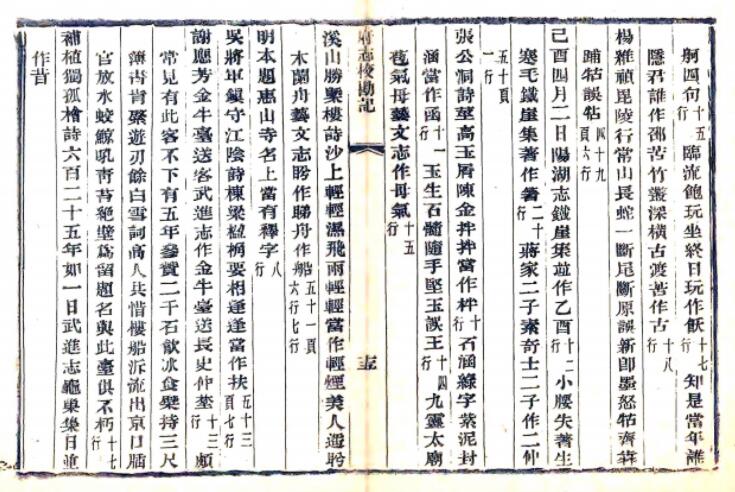 舸四句十五行臨流飽玩坐終日玩作飫十七行知是當年誰
隱君誰作邵苦竹叢深橫古渡苦作古十八行
楊維禎毘陵行常山長蛇一斷尾斷原誤新卽墨怒牯齊犇
踊牯誤牿四十九頁六行
己酉四月二日陽湖志鐵崖集並作乙酉十二行小腰失著生
寒毛鐵崖集著作箸二十行蔣家二子素奇士二子作二仲
五十頁一行
張公洞詩臺高玉屑陳金拌拌當作柈十行石涵綠字紫泥封
涵當作函十一行玉生石髓隨手堅玉誤王十四行九靈太廟
苞氣母藝文志作母氣十五行
府志校勘記
十五
溪山勝槩樓詩沙上輕輕濕飛雨輕輕當作輕煙美人遥盻
木蘭舟藝文志盻作睇舟作船五十一頁六行七行
明本題惠山寺名上當有釋字八行
吳將軍鎮守江陰詩棟梁楹桷要相逢逢當作扶五十三頁七行
謝應芳金牛臺送客武進志作金牛臺送長史仲埜十三行頗
常見有此客不下有五年參贊二千石飲冰食櫱持三尺
簿書肯綮遊刃餘白雪詞高人共惜樓船泝流出京口牐
官放水蛟鯨吼靑苔絕壁爲留題名與此臺俱不朽十七行
補植獨孤檜詩六百二十五年如一日武進志龜巢集日並
作昔